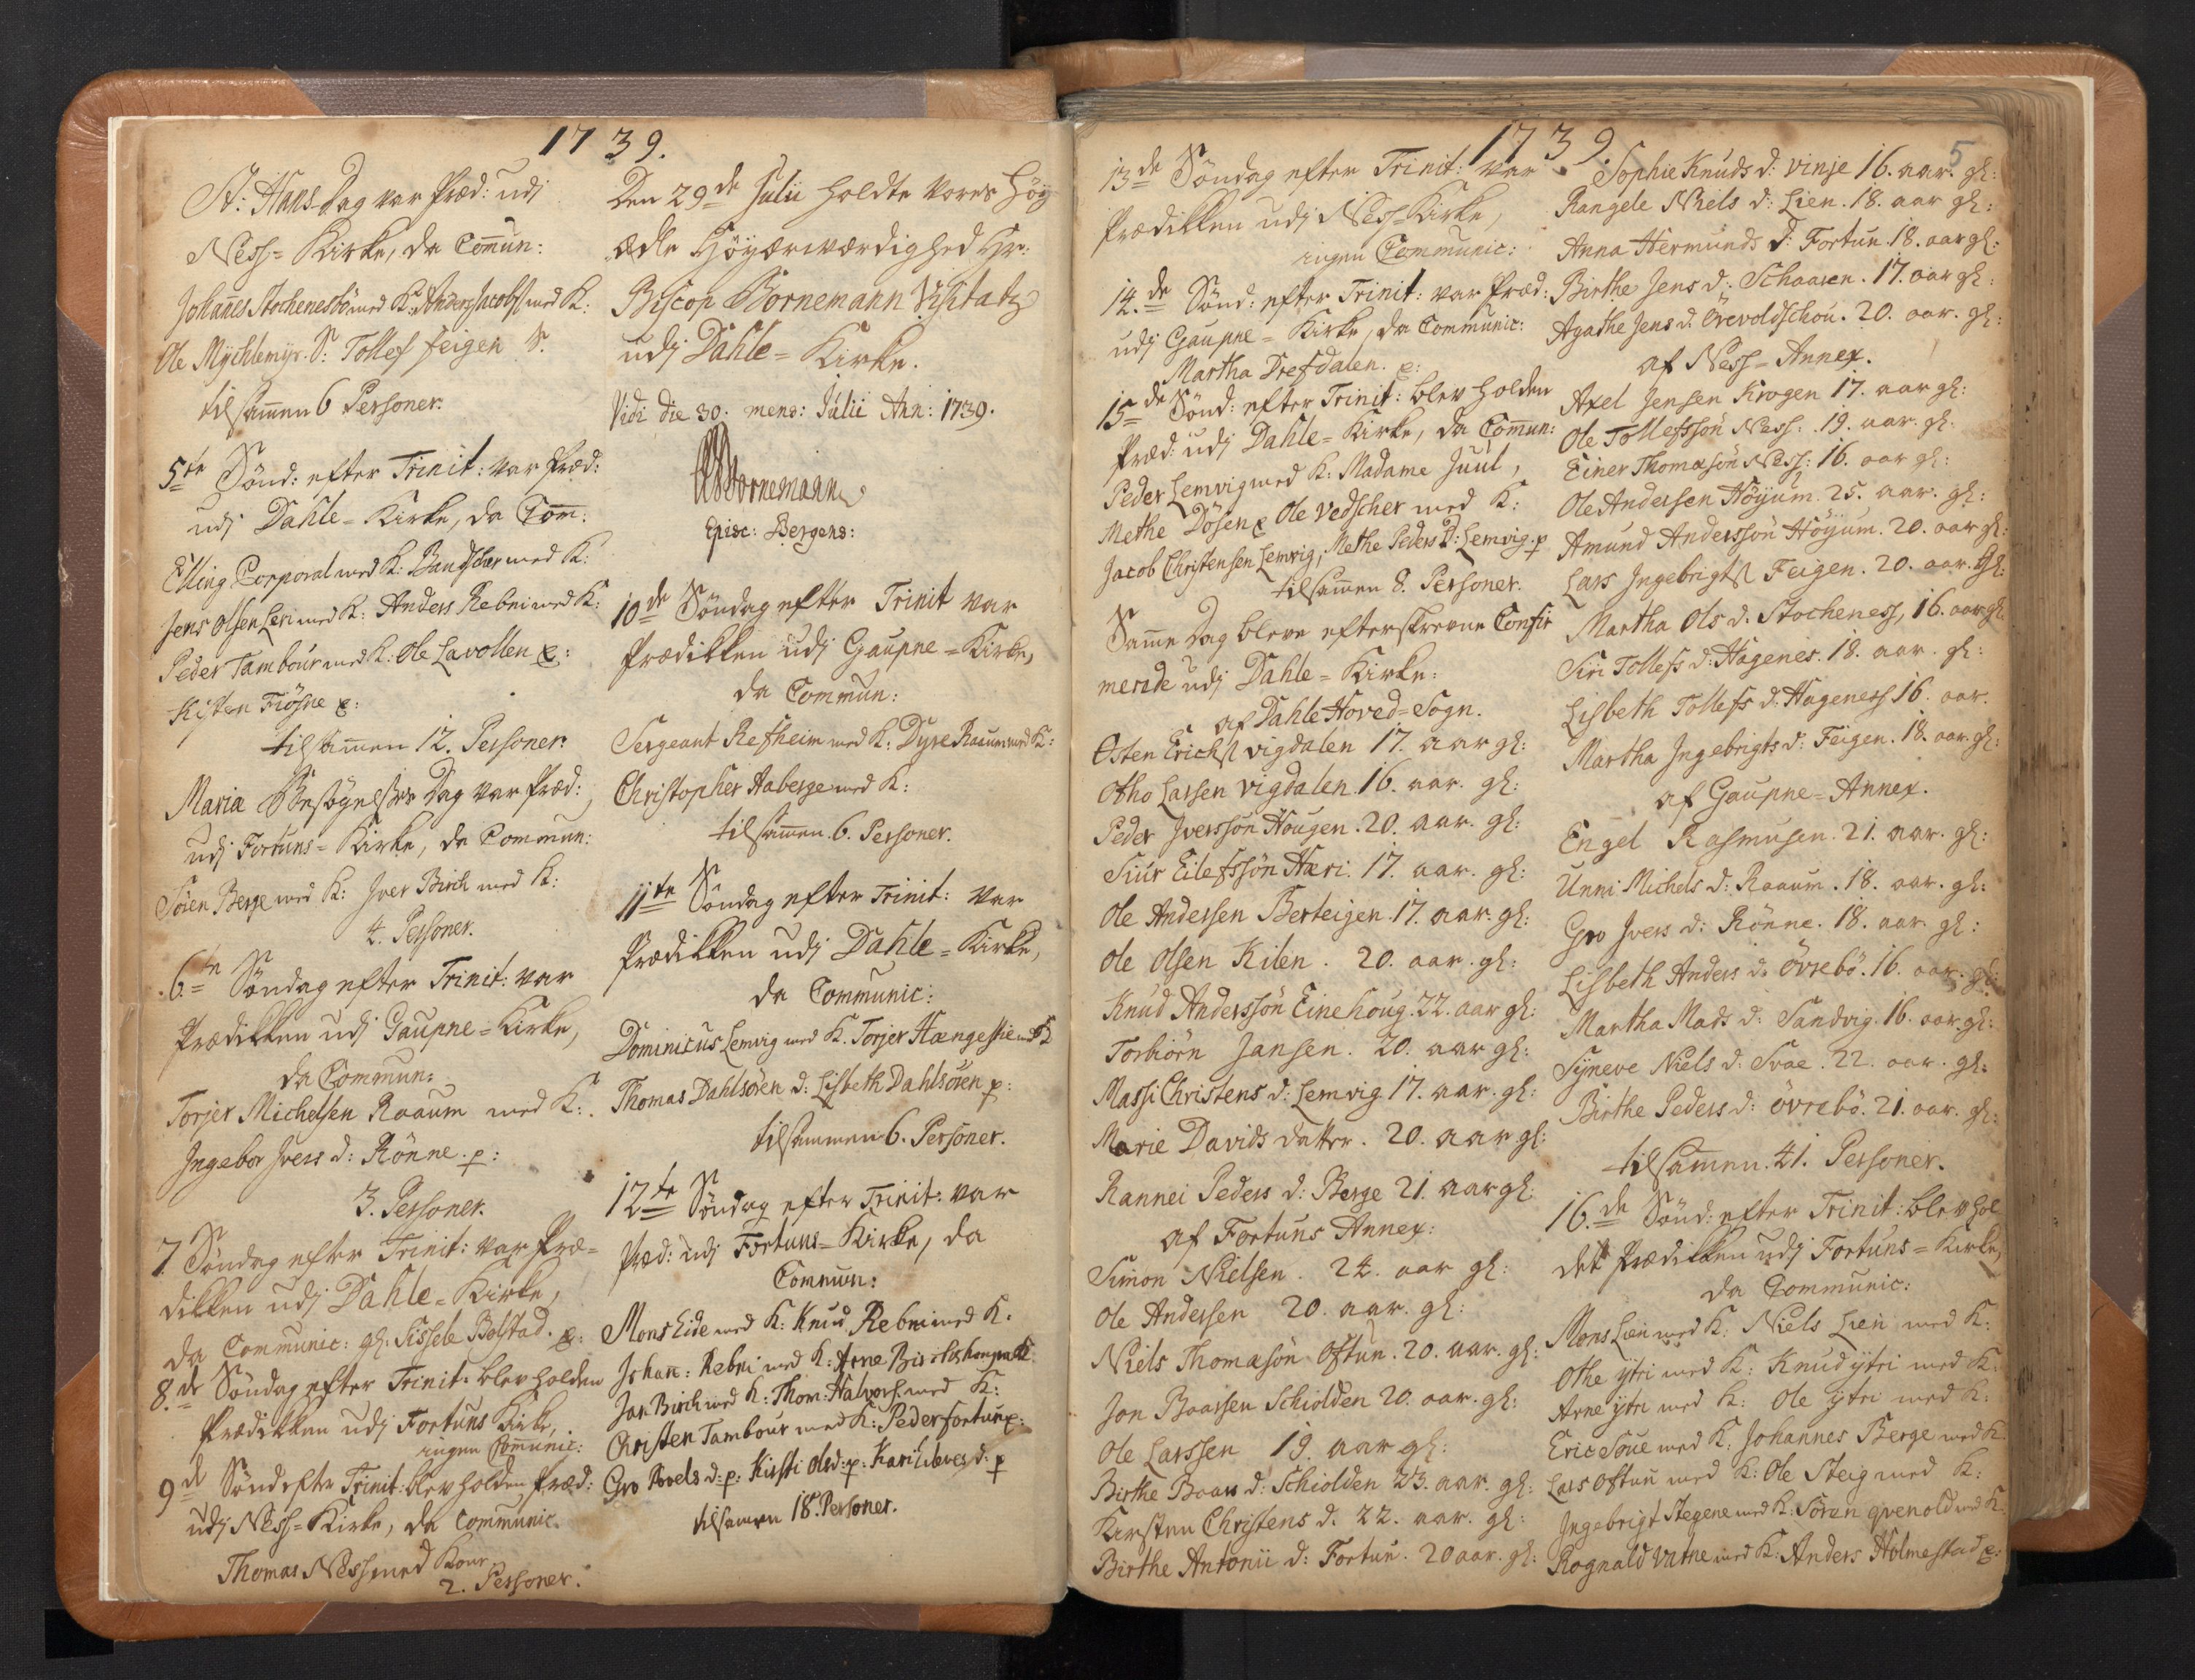 1739.
St: Hans Dag var Præd: udj
Ness= Kirke, da Comun:
Johanes Stochenesbö med K: Anders Jacobs med K:
Ole Mychlemyr. S: Tollef feigen S.
tilsamen 6 Personer.
5te Sönd: efter Trinit: var Præd:
udj Dahle= Kirke, da Com:
Elling Corporal med K: med K:
Jens Olsen Leri med K: Anders Rebni med K:
Peder Tambour med K: Ole Lavollen
Kisten Fiösne
tilsamen 12. Personer.
Maria Besögelses Dag var Præd:
udj Fortuns= Kirke, da Commun:
Sören Berge med K: Jver Birch med K:
4. Personer.
6te Söndag efter Trinit: var
Prædikken udj Gaupne= Kirke,
da Commun:
Torjer Michelsen Raaum med K:
Ingebor Jvers d: Rönne. p:
3. Personer.
7. Söndag efter Trinit: var Præ=
dikken udj Dahle= Kirke,
da Communic: gl: Sissele Bolstad.
8.de Söndag efter Trinit: blev holden
Prædikken udj Fortuns Kirke,
ingen Comunic:
9de Sönd efter Trinit: blev holden Præd:
udj Ness= Kirke, da Communic.
Thomas Ness med Kone
2. Personer.
Den 29de Julii holdte vores Höy
ædle Höyærværdighed Hr:
Biscop Bornemann Visitatz
udj Dahle= Kirke.
Vidi die 30. mens: Julii Ann: 1739.
Bornemann
Episc: Bergens:
10de Söndag efter Trinit var
Prædikken udj Gaupne= Kirke,
da Commun:
Sergeant Refheim med K: Dyre Raaum med K:
Christopher Aaberge med K:
tilsamen. 6. Personer.
11te Söndag efter Trinit: var
Prædikken udj Dahle= Kirke,
da Communic:
Dominicus Lemvig med K. Torjer med K
Thomas Dahlsören d: Lisbeth Dahlsören p:
tilsammen 6. Personer.
12te Söndag efter Trinit: var
Præd: udj Fortuns= Kirke, da
Commun:
Mons Eide med K: Knud Rebni med K.
Johan: Rebni med K: Arne med K
Jan Birch med K: Thom: Halvors. med K:
Christen Tambour med K: Peder fortun
Gro Povels d: p: Kirsti Olsd: p: Kari d: p
tilsamen 18. Personer.
1739.
5
13de Söndag efter Trinit: var
Prædikken udj Ness= Kirke,
ingen Communic:
14.de Sönd: efter Trinit: var Præd:
udj Gaupne= Kirke, da Communic:
Martha Drefdalen.
15de Sönd: efter Trinit: blev holden
Præd: udj Dahle= Kirke, da Comun:
Peder Lemvig med K: Madame Juul,
Methe Dösen Ole vedscher med K:
Jacob Christensen Lemvig, Methe Peders D: Lemvig. p
tilsamen 8. Personer.
Same Dag bleve efterskrevne Confir
merede udj Dahle= Kirke:
af Dahle Hoved= Sogn.
Östen Ericks vigdalen 17. aar gl:
Otho Larsen vigdalen. 16. aar. gl:
Peder Jversson Hougen. 20. aar. gl:
Siur Eilefssön Hæri. 17. aar. gl:
Ole Andersen Berteigen. 17. aar. gl:
Ole Olsen Kilen. 20. aar. gl:
Knud Anderssön Einehoug. 22. aar gl:
Torbiörn Jansen. 20. aar gl:
Massi Christens d: Lemvig. 17. aar. gl:
Marie Davids datter. 20. aar gl:
Rannei Peders d: Berge 21. aar gl:
af Fortuns Annex:
Simon Nielsen. 24. aar gl:
Ole Andersen 20. aar. gl:
Niels Thomasön Oftun. 20. aar. gl:
Jon Boarsen Schiolden 20. aar. gl:
Ole Larssen 19. aar gl:
Birthe Boars d: Schiolden 23. aar. gl:
Kirsten Christens d. 22. aar. gl:
Birthe Antonii d: Fortun. 20 aar. gl:
Sophie Knuds d: vinje 16. aar. gl:
Rangele Niels d: Lien. 18. aar gl:
Anna Hermunds d: Fortun. 18. aar gl:
Birthe Jens d: Schaaren. 17. aar gl:
Agathe Jens d. Örevoldschou. 20. aar. gl:
af Ness= Annex.
Axel Jensen Krogen 17. aar gl:
Ole Tollefssön Ness: 19. aar. gl:
Einer Thomasön Ness: 16. aar gl:
Ole Andersen Höyum. 25. aar. gl:
Amund Anderssön Höyum. 20. aar gl:
Lars Ingebrigts Feigen. 20. aar. gl:
Martha Ols d: Stocheness, 16. aar gl.
Siri Tollefs d: Hagenes. 18. aar. gl:
Lisbeth Tollefs d: Hageness 16. aar.
Martha Ingebrigts d: Feigen. 18. aar. gl:
af Gaupne= Annex.
Engel Rasmusen. 21. aar. gl:
Unni Michels d: Raaum. 18. aar. gl:
Gro Jvers d: Rönne. 18. aar. gl:
Lisbeth Anders d: Övrebö. 16. aar. gl:
Martha Mads d: Sandvig. 16. aar. gl:
Syneve Niels d: Svae. 22. aar. gl:
Birthe Peders d: Övrebö. 21. aar. gl:
tilsamen. 41. Personer.
16.de Sönd: efter Trinit: blev hol
det Prædikken udj Fortuns= Kirke,
da Communic:
Mons Lien med K: Niels Lien med K:
Othe ytri med K: Knud ytri med K:
Arne ytri med K: Ole ytri med K:
Eric Soue med K: Johannes Berge med K.
Lars Oftun med K: Ole Steig med K:
Ingebrigt Stegene med K: Sören qvenold med K
Rognald Vatne med K: Anders Holmestad